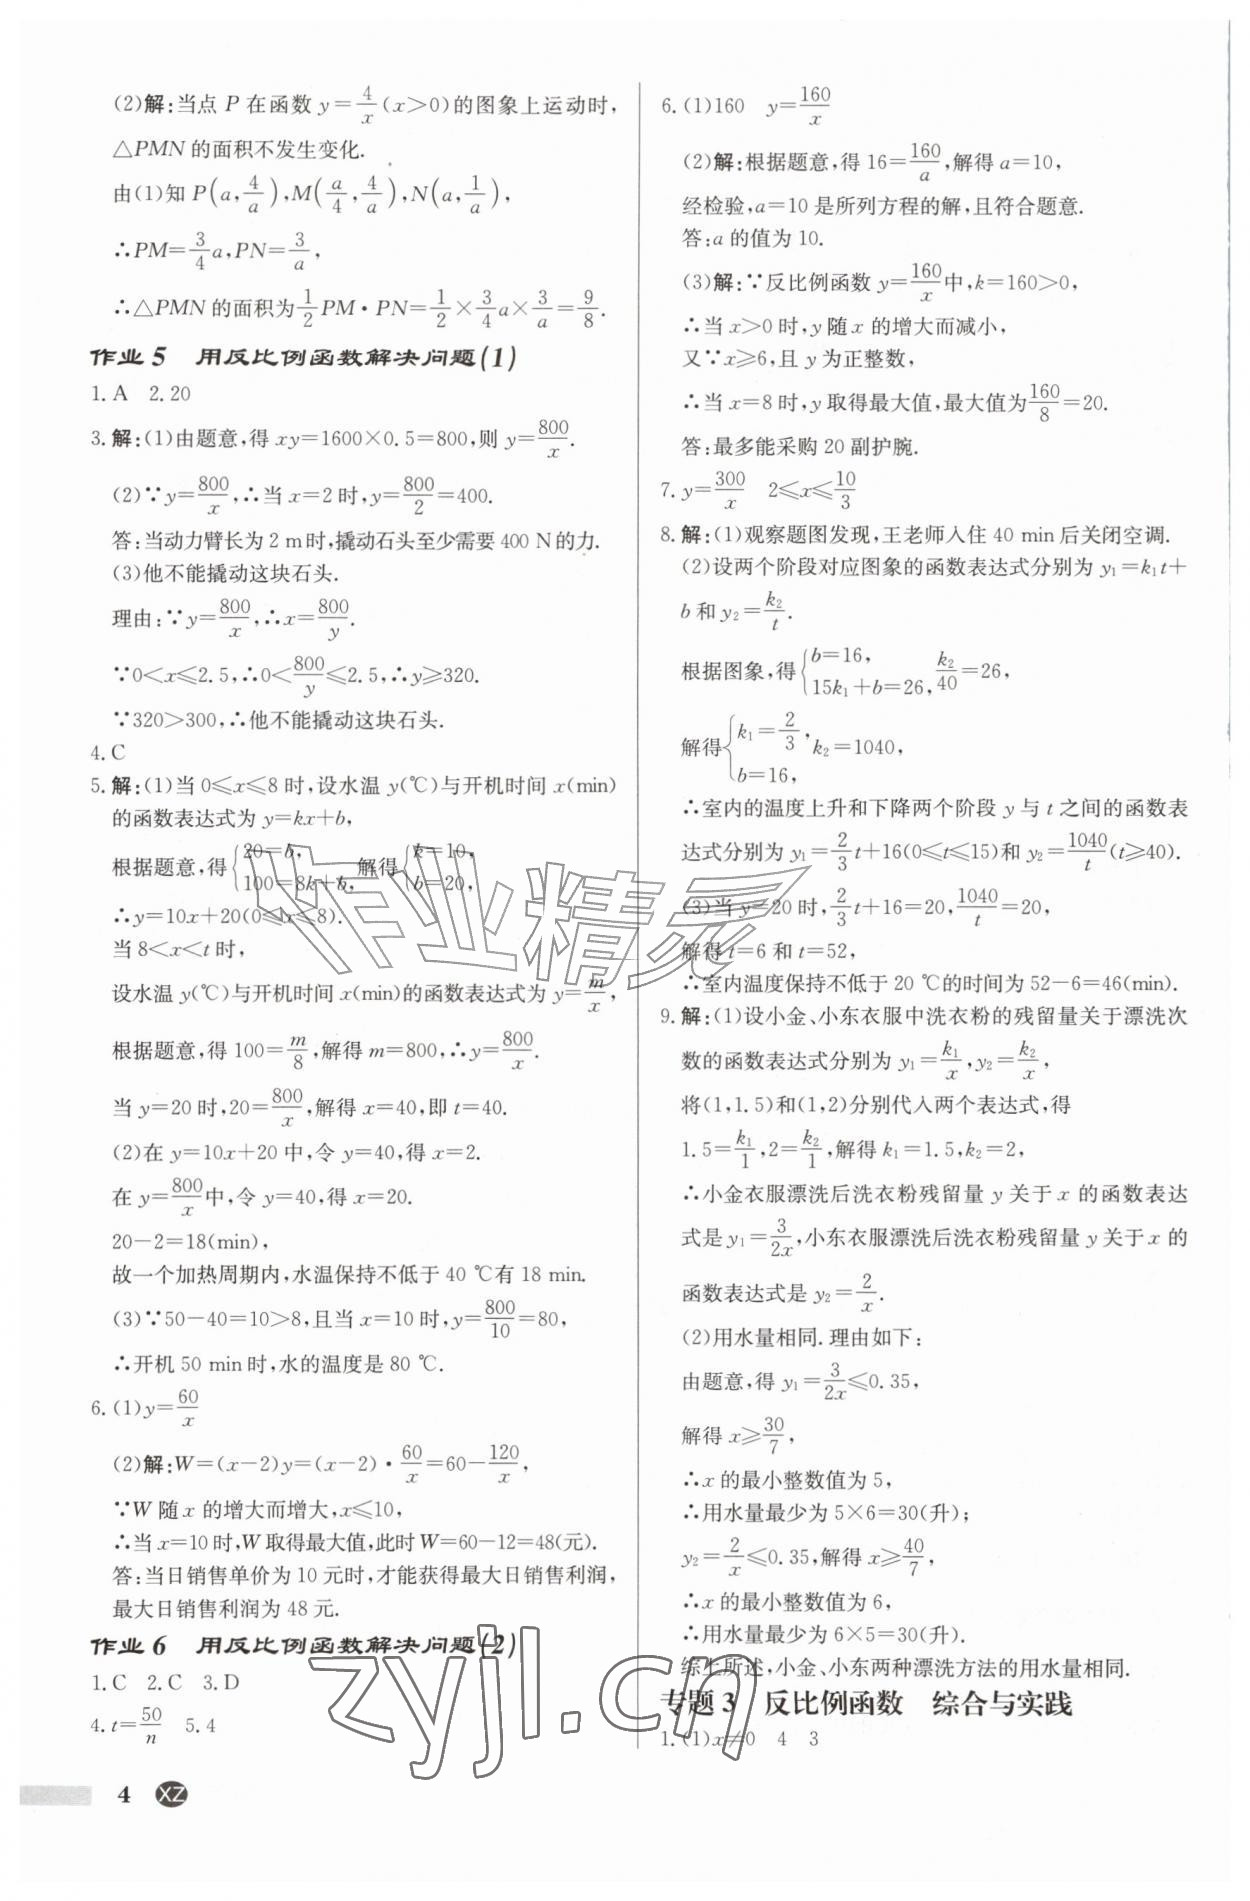 (2)解:当点 P 在函数 y=4/x(x>0)的图象上运动时,
△PMN 的面积不发生变化.
由(1)知 P(a,4/a),M(a/4,4/a),N(a,1/a),
∴PM=3/4a,PN=3/a,
∴△PMN 的面积为1/2PM·PN=1/2×3/4a×3/a=9/8.
作业 5 用反比例函数解决问题(1)
1. A 2. 20
3. 解:(1)由题意,得 xy=1600×0.5=800,则 y=800/x.
(2)∵y=800/x,∴当 x=2 时,y=800/2=400.
答:当动力臂长为 2 m时,撬动石头至少需要 400 N的力.
(3)他不能撬动这块石头.
理由:∵y=800/x,∴x=800/y.
∵0<x≤2.5,∴0<800/y≤2.5,∴y≥320.
∵320>300,∴他不能撬动这块石头.
4. C
5. 解:(1)当 0≤x≤8 时,设水温 y(℃)与开机时间 x(min)
的函数表达式为 y=kx+b,
根据题意,得{20=b, 100=8k+b, 解得{k=10, b=20,
∴y=10x+20(0≤x≤8).
当 8<x<t 时,
设水温 y(℃)与开机时间 x(min)的函数表达式为 y=m/x,
根据题意,得 100=m/8,解得 m=800,∴y=800/x.
当 y=20 时,20=800/x,解得 x=40,即 t=40.
(2)在 y=10x+20 中,令 y=40,得 x=2.
在 y=800/x中,令 y=40,得 x=20.
20-2=18(min),
故一个加热周期内,水温保持不低于 40 ℃有 18 min.
(3)∵50-40=10>8,且当 x=10 时,y=800/10=80,
∴开机 50 min 时,水的温度是 80 ℃.
6. (1)y=60/x
(2)解:W=(x-2)y=(x-2)·60/x=60-120/x,
∵W 随 x 的增大而增大,x≤10,
∴当 x=10 时,W 取得最大值,此时 W=60-12=48(元).
答:当日销售单价为 10 元时,才能获得最大日销售利润,
最大日销售利润为 48 元.
作业 6 用反比例函数解决问题(2)
1. C 2. C 3. D
4. t=50/n 5. 4
4 XZ
6. (1)160 y=160/x
(2)解:根据题意,得 16=160/a,解得 a=10,
经检验,a=10 是所列方程的解,且符合题意.
答:a 的值为 10.
(3)解:∵反比例函数 y=160/x中,k=160>0,
∴当 x>0 时,y 随 x 的增大而减小,
又∵x≥6,且 y 为正整数,
∴当 x=8 时,y 取得最大值,最大值为160/8=20.
答:最多能采购 20 副护腕.
7. y=300/x 2≤x≤10/3
8. 解:(1)观察题图发现,王老师入住 40 min 后关闭空调.
(2)设两个阶段对应图象的函数表达式分别为 y₁=k₁t+
b 和 y₂=k₂/t.
根据图象,得{b=16, 15k₁+b=26, k₂/40=26,
解得{k₁=2/3, b=16, k₂=1040,
∴室内的温度上升和下降两个阶段 y 与 t 之间的函数表
达式分别为 y₁=2/3t+16(0≤t≤15)和 y₂=1040/t(t≥40).
(3)当 y=20 时,2/3t+16=20,1040/t=20,
解得 t=6 和 t=52,
∴室内温度保持不低于 20 ℃的时间为 52-6=46(min).
9. 解:(1)设小金、小东衣服中洗衣粉的残留量关于漂洗次
数的函数表达式分别为 y₁=k₁/x,y₂=k₂/x,
将(1,1.5)和(1,2)分别代入两个表达式,得
1.5=k₁/1,2=k₂/1,解得 k₁=1.5,k₂=2,
∴小金衣服漂洗后洗衣粉残留量 y 关于 x 的函数表达
式是 y₁=3/2x,小东衣服漂洗后洗衣粉残留量 y 关于 x 的
函数表达式是 y₂=2/x.
(2)用水量相同. 理由如下:
由题意,得 y₁=3/2x≤0.35,
解得 x≥30/7,
∴x 的最小整数值为 5,
∴用水量最少为 5×6=30(升);
y₂=2/x≤0.35,解得 x≥40/7,
∴x 的最小整数值为 6,
∴用水量最少为 6×5=30(升).
综上所述,小金、小东两种漂洗方法的用水量相同.
专题 3 反比例函数 综合与实践
1. (1)x≠0 4 3
作业精灵
zyjl.cn